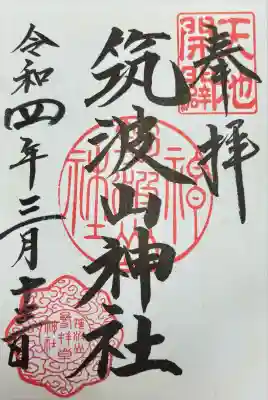 奉拝
天地開闢
筑波山神社
令和四年三月十三日